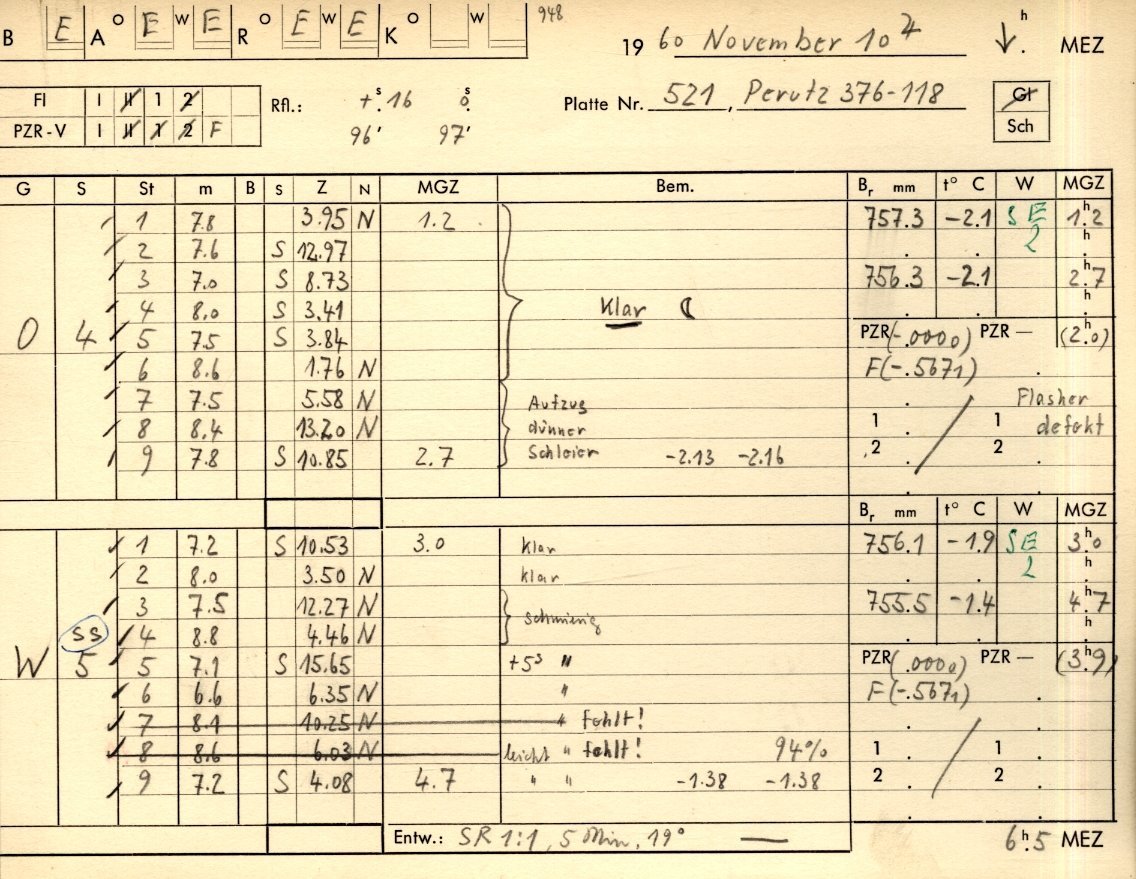 B E A O E W E R O E W E K O W 948
19 60 November 10 h MEZ
FI I II 1 2 Rfl.: +s.16 0s. Platte Nr. 521, Perutz 376-118 Gl
PZR-V I II 1 2 F 96' 97' Sch
G S St m B S Z N MGZ Bem. Br mm t° C W MGZ
1 7.8 3.95 N 1.2 757.3 -2.1 SE 1h.2
2 7.6 S 12.97 2 h.
3 7.0 S 8.73 756.3 -2.1 2h.7
4 8.0 S 3.41 Klar h.
O 4 5 7.5 S 3.84 PZR(-.0000) PZR — (2h.0)
6 8.6 1.76 N F(-.5671) .
7 7.5 5.58 N Aufzug Flasher
8 8.4 13.20 N dünner 1 . 1 defekt
9 7.8 S 10.85 2.7 Schleier -2.13 -2.16 2 . 2 .
Br mm t° C W MGZ
1 7.2 S 10.53 3.0 klar 756.1 -1.9 SE 3h.0
2 8.0 3.50 N klar 2 h.
3 7.5 12.27 N schmierig 755.5 -1.4 4h.7
SS 4 8.8 4.46 N h.
W 5 5 7.1 S 15.65 +5s " PZR(.0000) PZR — (3h.9)
6 6.6 6.35 N " F(-.5671) .
7 8.1 10.25 N " fehlt!
8 8.6 6.03 N leicht " fehlt! 94% 1 . 1 .
9 7.2 S 4.08 4.7 " " -1.38 -1.38 2 . 2 .
Entw.: SR 1:1, 5 Min, 19° — 6h.5 MEZ